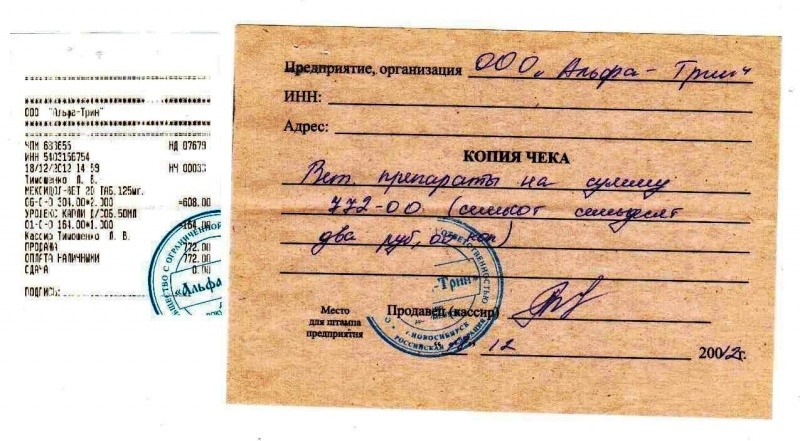 ООО "Альфа-Трин"
ЧПМ 683655 НД 07679
ИНН 5402156754
18/12/2012 14 59 НЧ 00033
Тимошенко Л. В.
МЕКСИДОЛ-ВЕТ 20 ТАБ.125мг.
304.00*2.000 =608.00
УРОЛЕКС КАПЛИ Д/СОБ.50МЛ
01-С-0 164.00*1.000 =164.00
Кассир Тимошенко Л. В.
ПРОДАЖА 772.00
ОПЛАТА НАЛИЧНЫМИ 772.00
СДАЧА 0.00
ПОДПИСЬ:
С ОГРАНИЧЕННОЙ
«Альфа
Предприятие, организация ООО „Альфа-Трин"
ИНН:
Адрес:
КОПИЯ ЧЕКА
Вет. препараты на сумму
772-00 (семьсот семьдесят
два руб, 00 коп)
ОТВЕТСТВЕННОСТЬЮ
-Трин»
г.НОВОСИБИРСК
РОССИЙСКАЯ
Место для штампа предприятия
Продавец (кассир)
12 2002г.